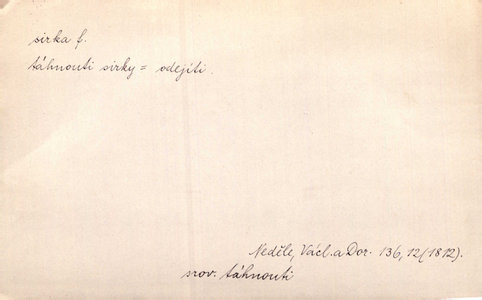 sirka f.
táhnouti sirky = odejíti.
Neděle, Václ. a Dor. 136, 12 (1812).
srov. táhnouti